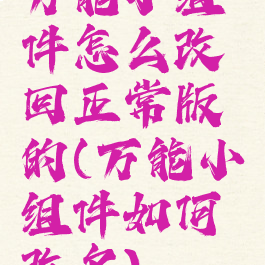 万能小组
件怎么改
回正常版
的(万能小
组件如何
改名)